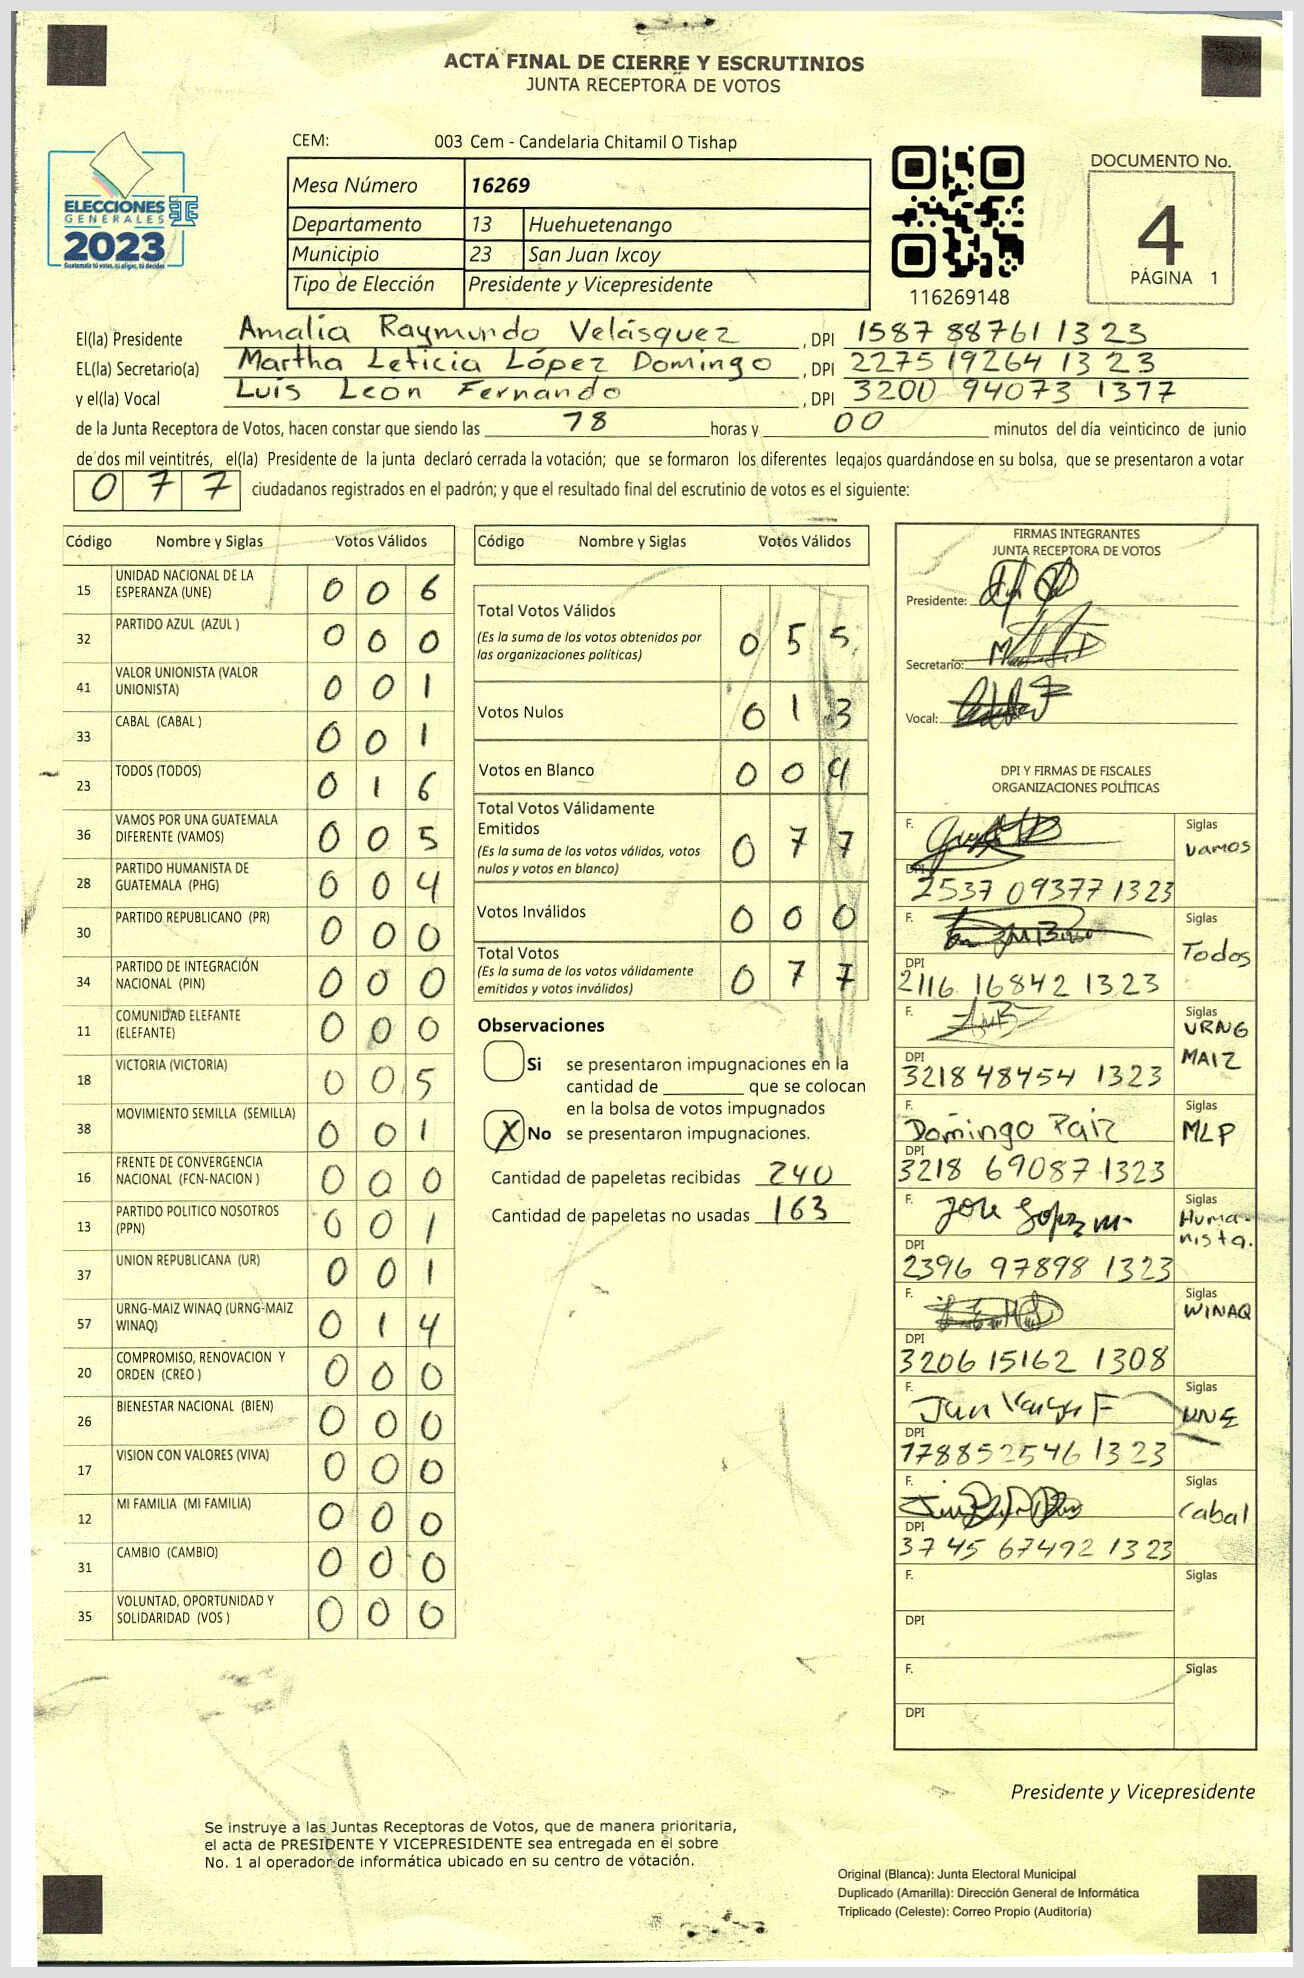 ACTA FINAL DE CIERRE Y ESCRUTINIOS
JUNTA RECEPTORA DE VOTOS
CEM: 003 Cem - Candelaria Chitamil O Tishap
ELECCIONES
GENERALES
2023
Guatemala tú votas, tú eliges, tú decides
Mesa Número 16269
Departamento 13 Huehuetenango
Municipio 23 San Juan Ixcoy
Tipo de Elección Presidente y Vicepresidente
116269148
DOCUMENTO No.
4
PÁGINA 1
El(la) Presidente Amalia Raymundo Velásquez, DPI 1587 88761 1323
EL(la) Secretario(a) Martha Leticia López Domingo, DPI 2275 19264 1323
y el(la) Vocal Luis León Fernando, DPI 3200 94073 1377
de la Junta Receptora de Votos, hacen constar que siendo las 78 horas y 00 minutos del día veinticinco de junio
de dos mil veintitrés, el(la) Presidente de la junta declaró cerrada la votación; que se formaron los diferentes legajos guardándose en su bolsa, que se presentaron a votar
077 ciudadanos registrados en el padrón; y que el resultado final del escrutinio de votos es el siguiente:
Código Nombre y Siglas Votos Válidos
15 UNIDAD NACIONAL DE LA ESPERANZA (UNE) 006
32 PARTIDO AZUL (AZUL ) 000
41 VALOR UNIONISTA (VALOR UNIONISTA) 001
33 CABAL (CABAL ) 001
23 TODOS (TODOS) 016
36 VAMOS POR UNA GUATEMALA DIFERENTE (VAMOS) 005
28 PARTIDO HUMANISTA DE GUATEMALA (PHG) 004
30 PARTIDO REPUBLICANO (PR) 000
34 PARTIDO DE INTEGRACIÓN NACIONAL (PIN) 000
11 COMUNIDAD ELEFANTE (ELEFANTE) 000
18 VICTORIA (VICTORIA) 005
38 MOVIMIENTO SEMILLA (SEMILLA) 001
16 FRENTE DE CONVERGENCIA NACIONAL (FCN-NACION ) 000
13 PARTIDO POLITICO NOSOTROS (PPN) 001
37 UNION REPUBLICANA (UR) 001
57 URNG-MAIZ WINAQ (URNG-MAIZ WINAQ) 014
20 COMPROMISO, RENOVACION Y ORDEN (CREO ) 000
26 BIENESTAR NACIONAL (BIEN) 000
17 VISION CON VALORES (VIVA) 000
12 MI FAMILIA (MI FAMILIA) 000
31 CAMBIO (CAMBIO) 000
35 VOLUNTAD, OPORTUNIDAD Y SOLIDARIDAD (VOS ) 000
Código Nombre y Siglas Votos Válidos
Total Votos Válidos 055
(Es la suma de los votos obtenidos por
las organizaciones políticas)
Votos Nulos 013
Votos en Blanco 004
Total Votos Válidamente
Emitidos 077
(Es la suma de los votos válidos, votos
nulos y votos en blanco)
Votos Inválidos 000
Total Votos 077
(Es la suma de los votos válidamente
emitidos y votos inválidos)
Observaciones
Si se presentaron impugnaciones en la
cantidad de ________ que se colocan
en la bolsa de votos impugnados
X No se presentaron impugnaciones.
Cantidad de papeletas recibidas 240
Cantidad de papeletas no usadas 163
FIRMAS INTEGRANTES
JUNTA RECEPTORA DE VOTOS
Presidente:
Secretario:
Vocal:
DPI Y FIRMAS DE FISCALES
ORGANIZACIONES POLÍTICAS
F. Siglas Vamos
DPI 2537 09377 1323
F. Siglas Todos
DPI 2116 16842 1323
F. Siglas URNG MAIZ
DPI 3218 48454 1323
F. Domingo Paiz Siglas MLP
DPI 3218 69087 1323
F. José Siglas Humanista.
DPI 2396 97898 1323
F. Siglas WINAQ
DPI 3206 15162 1308
F. Siglas UNE
DPI 178852546 1323
F. Siglas Cabal
DPI 3745 67492 1323
F. Siglas
DPI
F. Siglas
DPI
Presidente y Vicepresidente
Se instruye a las Juntas Receptoras de Votos, que de manera prioritaria,
el acta de PRESIDENTE Y VICEPRESIDENTE sea entregada en el sobre
No. 1 al operador de informática ubicado en su centro de votación.
Original (Blanca): Junta Electoral Municipal
Duplicado (Amarilla): Dirección General de Informática
Triplicado (Celeste): Correo Propio (Auditoría)